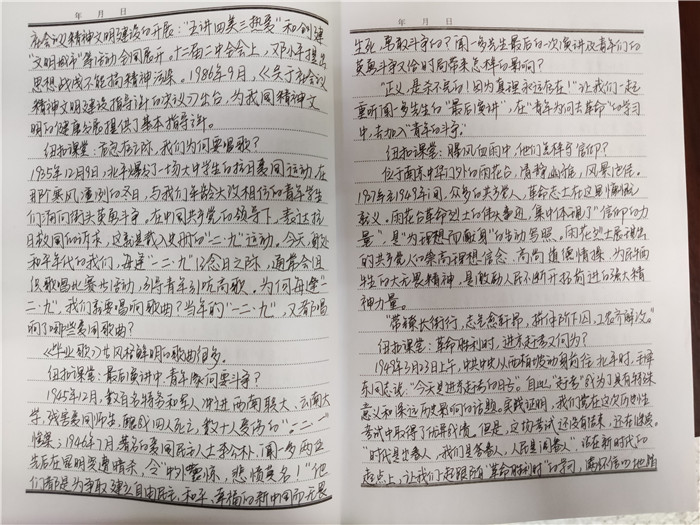 年 月 日
社会主义精神文明建设的开展："五讲四美三热爱"和创建
"文明城市"等活动全面展开。十二届二中全会上，邓小平提出
思想战线不能搞精神污染。1986年9月，《关于社会主义
精神文明建设指导方针的决议》出台，为我国精神文
明的健康发展提供了基本指导方针。
纽扣课堂：危亡之际，我们为何要唱歌？
1935年12月9日，北平爆发了一场大中学生的抗日爱国运动，在
那个寒风凛冽的冬日，与我们年龄大致相仿的青年学生
们涌向街头英勇斗争，在中国共产党的领导下，表达抗
日救国的诉求，这就是载入史册的"一二·九"运动。今天，面处
和平年代的我们，每逢"一二·九"纪念日之际，通常会组
织歌唱比赛等活动，引得青年引吭高歌，为何每逢"一
二·九"，我们需要唱响歌曲？当年的"一二·九"，又都唱
响了哪些爱国歌曲？
《毕业歌》等风格鲜明的歌曲很多。
纽扣课堂：最后演讲中，青年缘何要斗争？
1945年12月，数百名特务和军人冲进西南联大、云南大
学，残害爱国师生，酿成四人死亡，数十人受伤的"一二·一
惨案；1946年7月著名的爱国民主人士李公朴、闻一多两位
先后在昆明突遭暗杀，令"中外震惊，悲愤莫名！"他
们都是为争取建立自由民主、和平、幸福的新中国而无畏
年 月 日
生死，勇敢斗争的？闻一多先生最后的一次演讲及青年们的
英勇斗争又给时局带来怎样的影响？
"正义，是杀不完的！因为真理永远存在！"让我们一起
重听闻一多先生的"最后演讲"，在"青年为何去革命"的学习
中，去加入"青年的斗争"。
纽扣课堂：腥风血雨中，他们怎样守信仰？
位于南京中华门外的雨花台，清静幽雅，风景独佳。
1927年至1949年间，众多的共产党人、革命志士在这里慷慨
就义。雨花台革命烈士的伟大壮举，集中体现了"信仰的力
量"，是"为理想而献身"的生动写照。雨花烈士展现出
的共产党人的崇高理想信念、高尚道德情操、为民牺
牲的大无畏精神，是激励人民不断开拓前进的强大精
神力量。
"带镣长街行，志气愈轩昂，拼作阶下囚，工农齐解放。"
纽扣课堂：革命胜利时，进京赶考又何为？
1949年3月23日上午，中共中央从西柏坡动身前往北平时，毛泽
东同志说："今天是进京赶考的日子。自此，"赶考"成为了具有特殊
意义和深远历史影响的话题。实践证明，我们党在这次历史性
考试中取得了优异成绩。但是，这场考试还没有结束，还在继续。
"时代是出卷人，我们是答卷人，人民是阅卷人"，站在新时代的
起点上，让我们一起跟随"革命胜利时"的